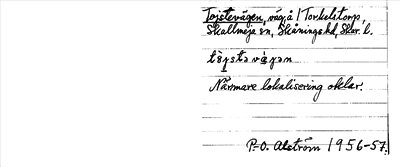 Tojstevägen, väg å Torkelstorp,
Skallmeja sn, Skånings hd, Skar. l.
Närmare lokalisering oklar.
P.-O. Alström 1956-57.